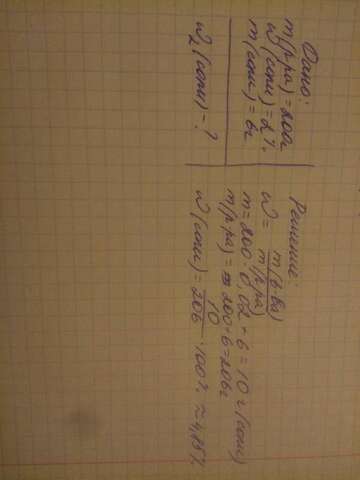 Дано:
m(р-ра) = 200г
ω(соли) = 2%
m(соли) = 6г
ω₂(соли) - ?
Решение:
ω = m(р.ва) / m(р.ра)
m = 200 · 0,02 + 6 = 10 г (соли)
m(р.ра) = 200 + 6 = 206г
ω(соли) = 10/206 · 100% ≈ 4,85%